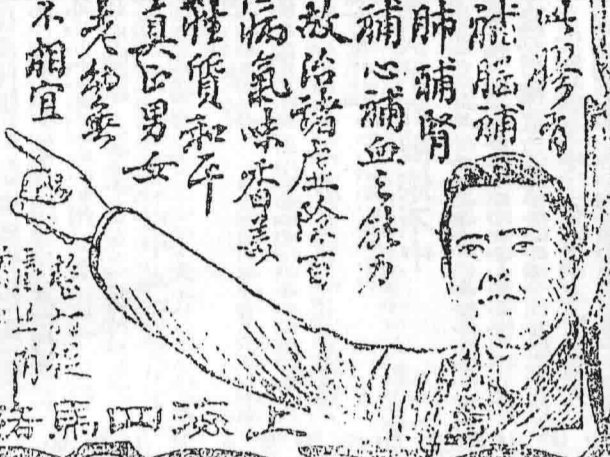 此膠有
補腦補
肺補腎
補心補血之能力
故治諸虛除百
病氣味香美
性質和平
真正男女
老幼無
不相宜
上海四馬路